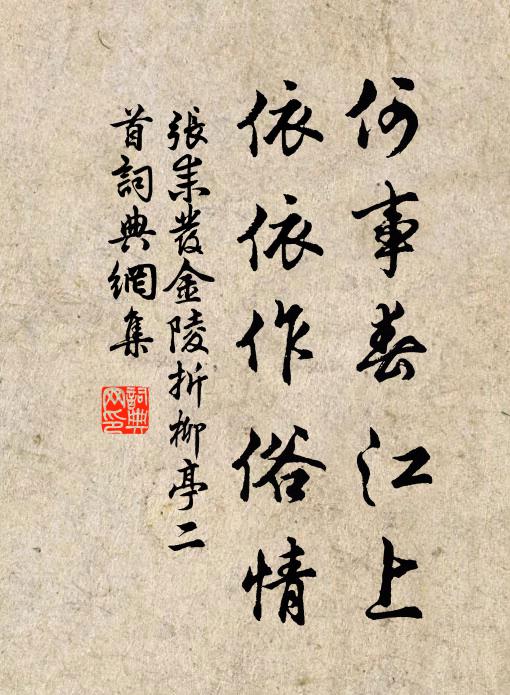 何事春江上
依依作俗情
張耒發金陵折柳亭二
首詞典網集
詞典
网印